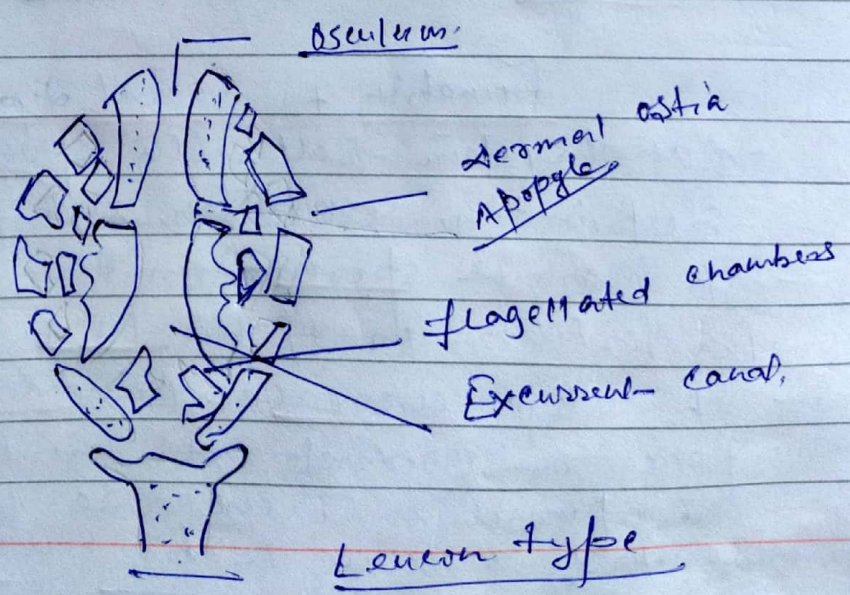 Osculum.
Dermal ostia
Apopyle
flagellated chambers
Excurrent canal.
Leucon type